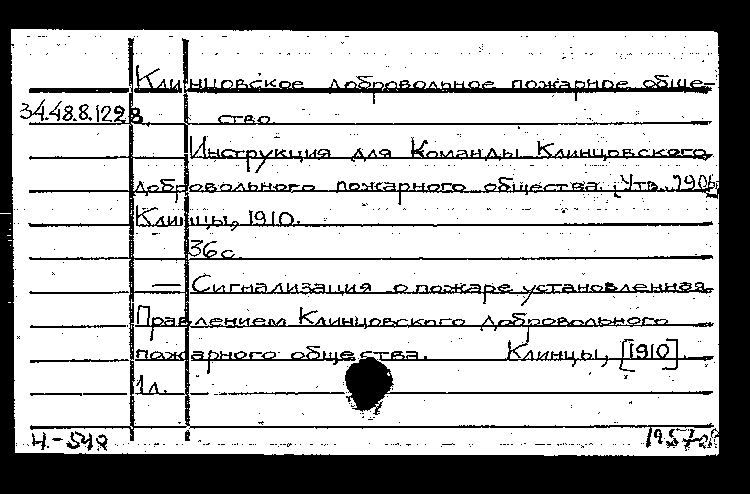 Клинцовское добровольное пожарное обще-
34.48.8.1228. ство.
Инструкция для Команды Клинцовского
добровольного пожарного общества. [Утв. 1906
Клинцы, 1910.
36 с.
— Сигнализация о пожаре установленная
Правлением Клинцовского добровольного
пожарного общества. Клинцы, [1910].
1 л.
Н.-549 1957